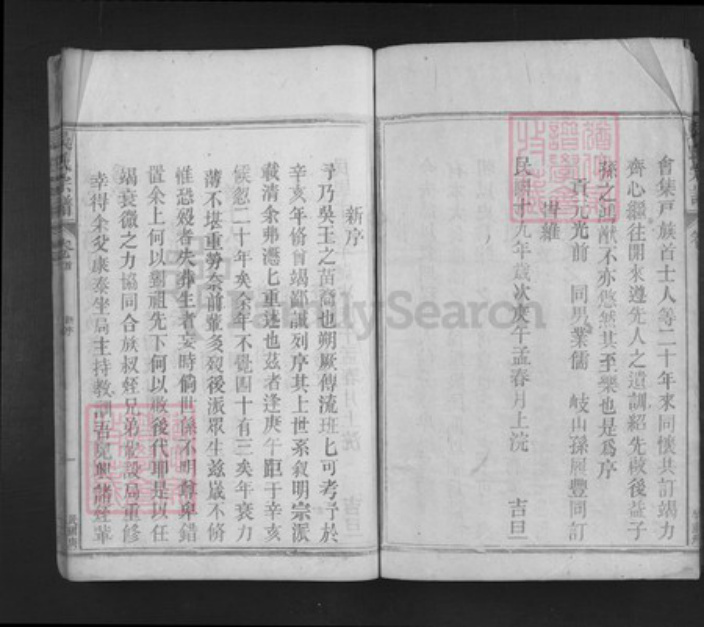 會集戸族首士人等二十年來同懷共訂竭力
齊心繼往開來遵先人之遺訓紹先啟後益子
孫之 猷不亦悠然其至樂也是爲序
貢元光前 同男業儒 岐山孫履豐同訂
維
民國十九年歲次庚午孟春月上浣 吉旦
新序
予乃吳王之苗裔也朔厥傳流班匕可考予於
辛亥年脩曾竭鄙誠列序其上世系叙明宗派
載清余弗慿匕重述也茲者逢庚午距于辛亥
候忽二十年矣余年不覺四十有三矣年衰力
薄不堪重勞奈前輩多歿後派眾生兹歲不脩
惟恐歿者失葬生者妄時倘世係不明尊卑錯
置余上何以對祖先下何以啟後代卽是以任
竭衰微之力協同合族叔姪兄弟 設局重修
幸得余父康泰坐局主持教訓吾兒興諸姪輩
氏宗譜
新序
FamilySearch